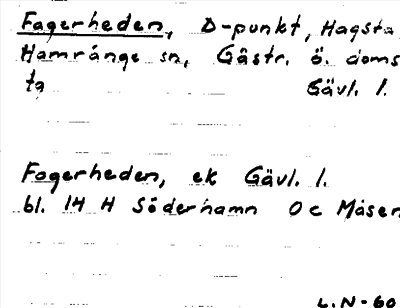 Fagerheden, D-punkt, Hagsta
Hamrånge sn, Gästr. ö. doms
ta Gävl. l.
Fagerheden, ek Gävl. l.
bl. 14 H Söderhamn O c Måsen
L.N-60